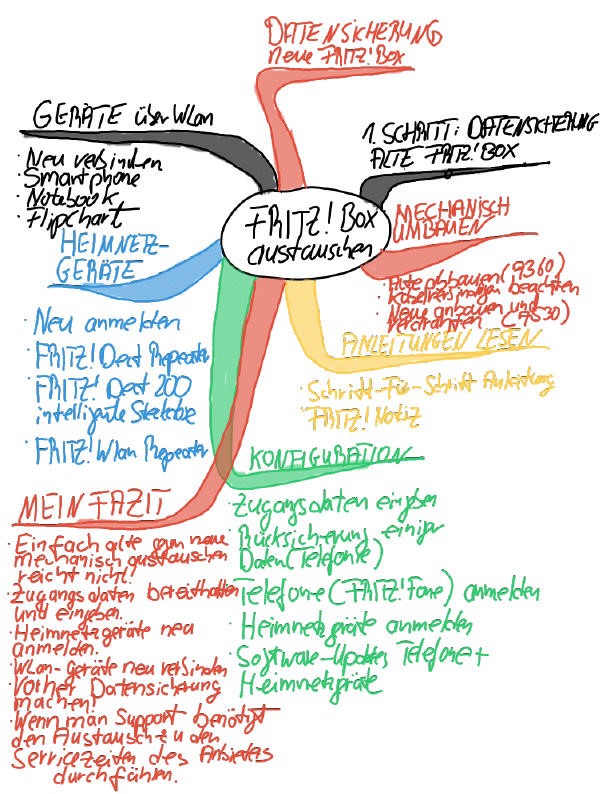 DATENSICHERUNG
Neue FRITZ!Box
GERÄTE über WLan
· Neu verbinden
· Smartphone
· Notebook
· Flipchart
1. SCHRITT: DATENSICHERUNG
ALTE FRITZ!BOX
FRITZ! Box
austauschen
MECHANISCH
UMBAUEN
· Alte abbauen (7360)
· Kabelverbindungen beachten
· Neue anbauen und
verdrahten (7530)
HEIMNETZ-
GERÄTE
· Neu anmelden
· FRITZ! Dect Repeater
· FRITZ! Dect 200
intelligente Steckdose
· FRITZ! Wlan Repeater
ANLEITUNGEN LESEN
· Schritt-Für-Schritt Anleitung
· FRITZ! Notiz
KONFIGURATION
· Zugangsdaten eingeben
· Rücksicherung einiger
Daten (Telefonie)
· Telefone (FRITZ!Fone) anmelden
· Heimnetzgeräte anmelden
· Software-Updates Telefone +
Heimnetzgeräte
MEIN FAZIT
· Einfach alte gegen neue
mechanisch austauschen
reicht nicht!
· Zugangsdaten bereithalten
und eingeben.
· Heimnetzgeräte neu
anmelden.
· WLan-Geräte neu verbinden
· Vorher Datensicherung
machen!
· Wenn man Support benötigt
den Austausch zu den
Servicezeiten des Anbieters
durchführen.